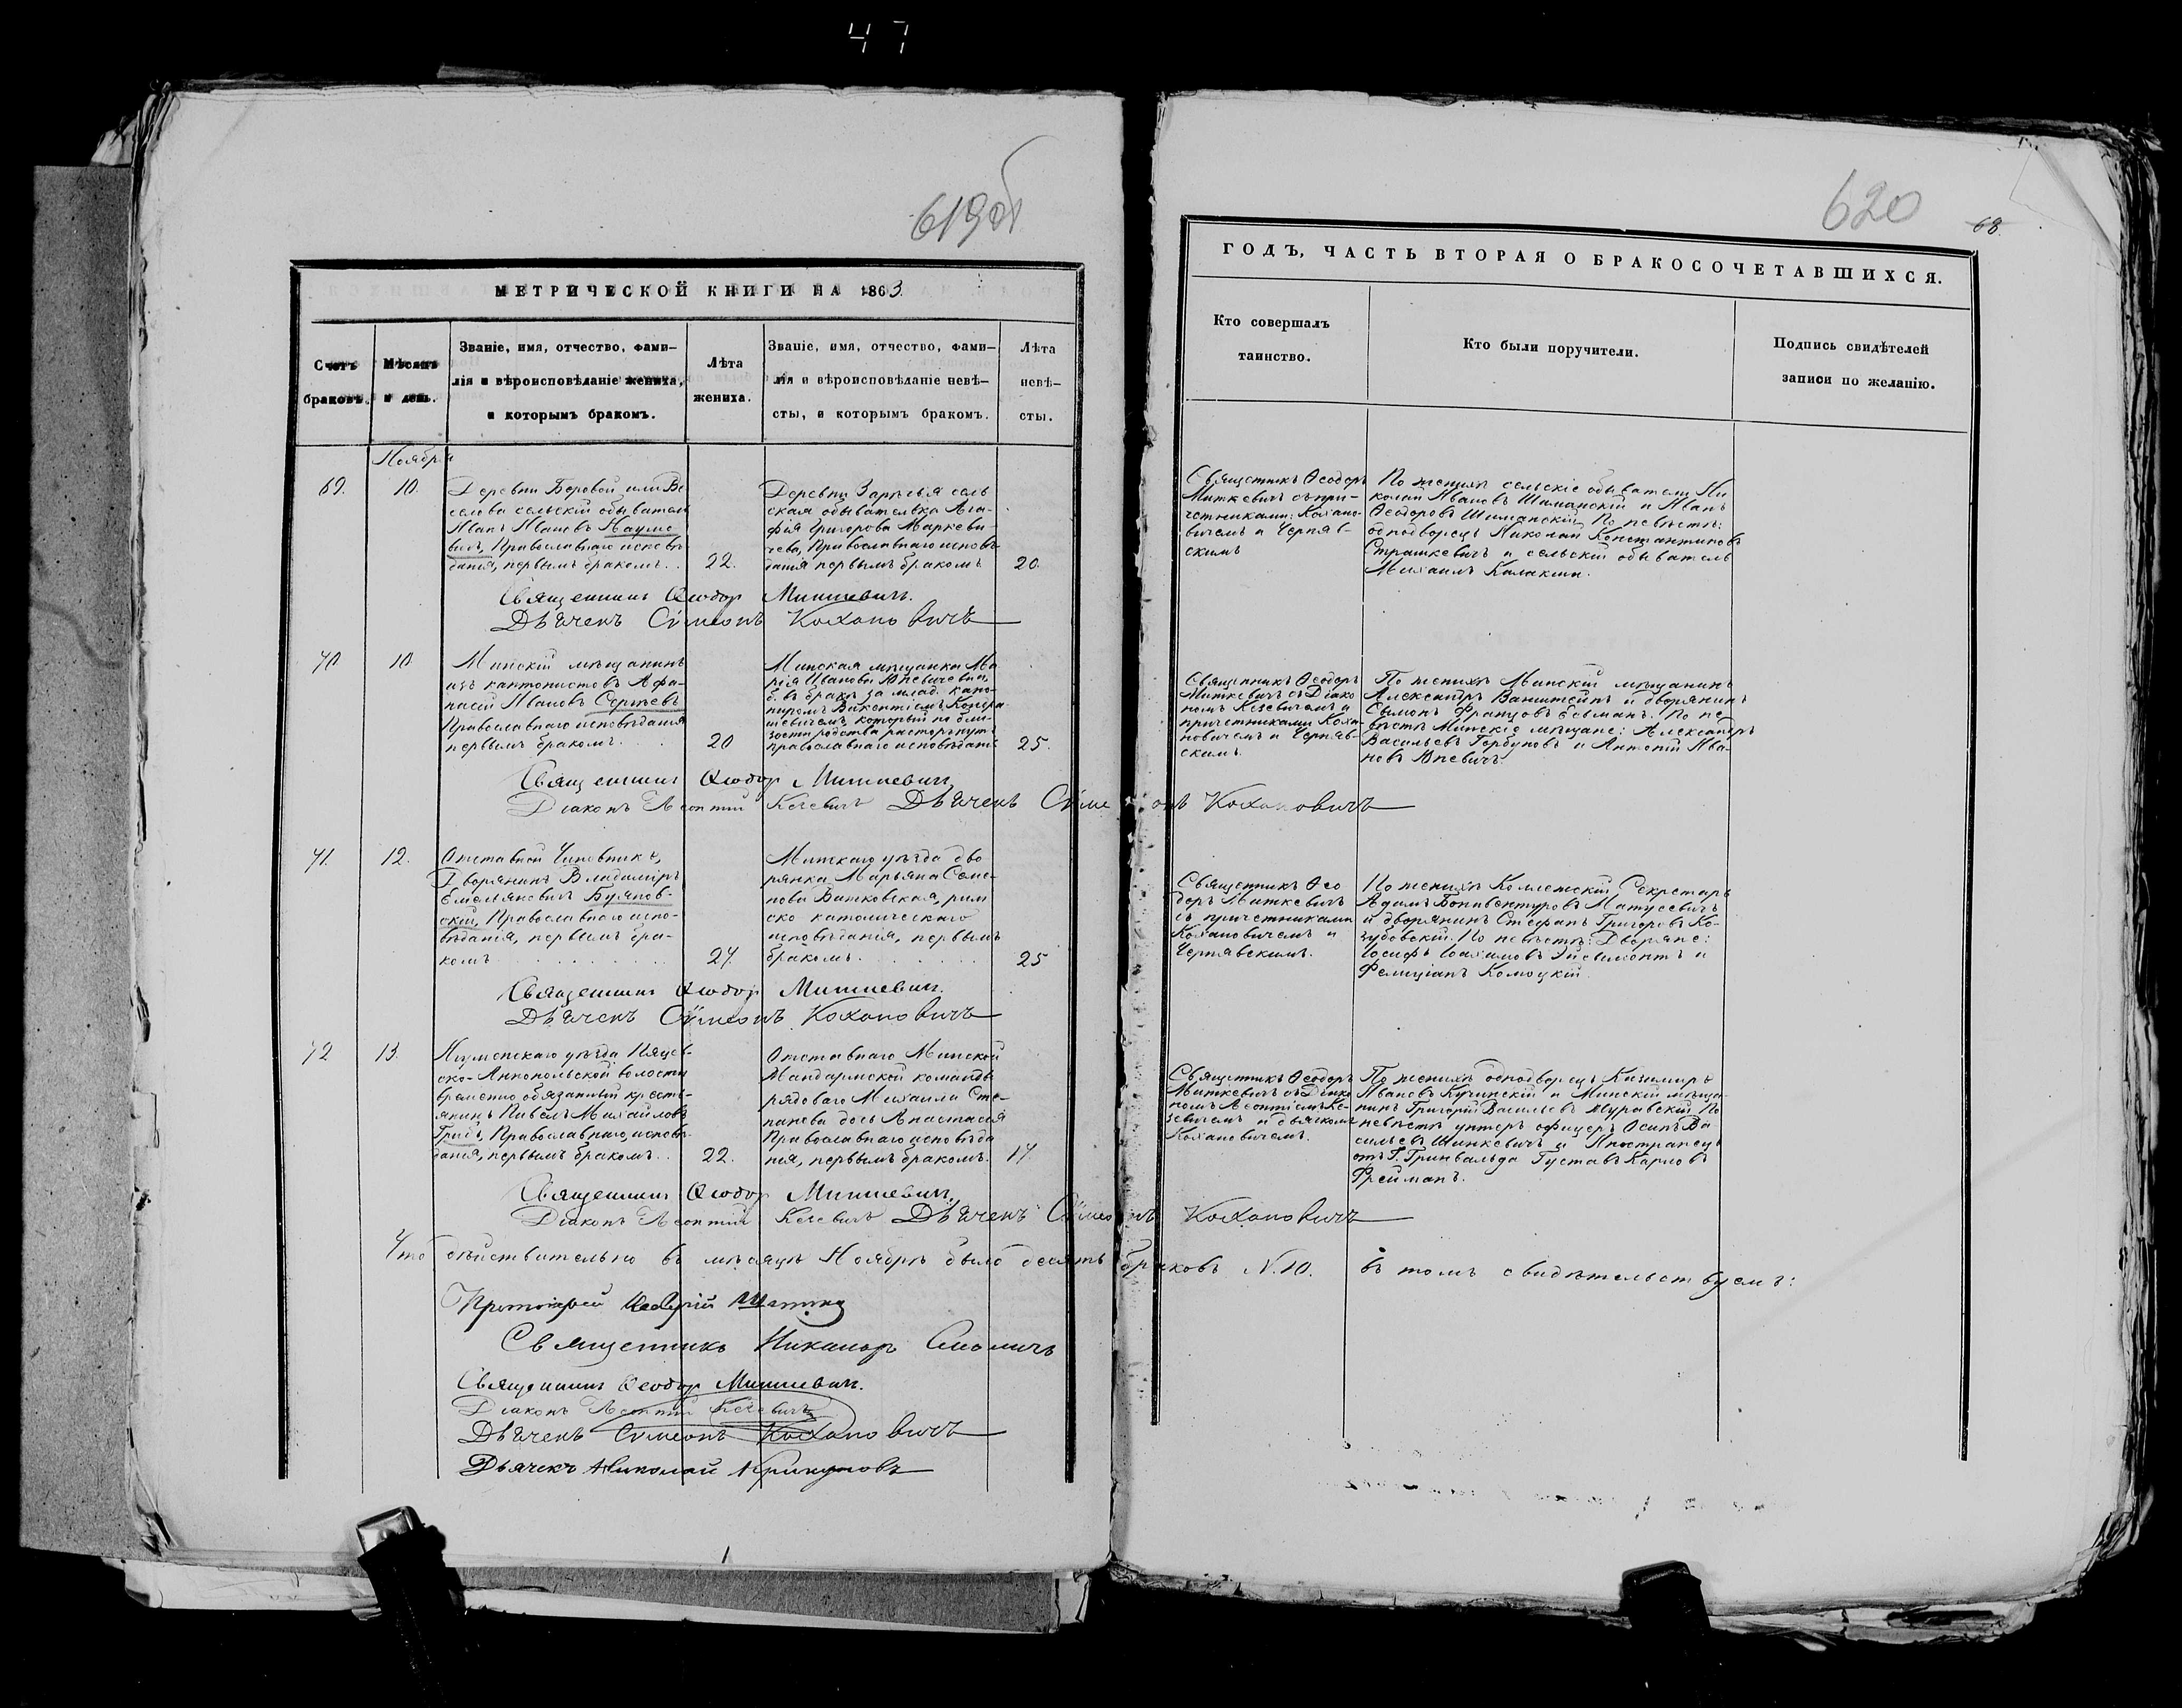 47
619об
620
68
МЕТРИЧЕСКОЙ КНИГИ НА 1863.
ГОДЪ, ЧАСТЬ ВТОРАЯ О БРАКОСОЧЕТАВШИХСЯ.
Счетъ браковъ.
Мѣсяцъ и день.
Званіе, имя, отчество, фами-
лія и вѣроисповѣданіе жениха,
и которымъ бракомъ.
Лѣта
жениха.
Званіе, имя, отчество, фами-
лія и вѣроисповѣданіе невѣ-
сты, и которымъ бракомъ.
Лѣта
невѣ-
сты.
Кто совершалъ
таинство.
Кто были поручители.
Подпись свидѣтелей
записи по желанію.
Ноября
69.
10.
Деревни Боровой или Ве
селова сельскій обыватель
Иванъ Ивановъ Наумо
вичъ, Православнаго исповѣ
данія, первымъ бракомъ..
22.
Деревни Зарѣчья сель
ская обывателька Ага-
фія Григорова Маркеви-
чева, Православнаго исповѣ
данія первымъ бракомъ
20.
Священникъ Ѳеодоръ
Миткевичъ съ при-
четниками: Кохано-
вичемъ и Черняв-
скимъ
По женихѣ сельскіе обыватели Ни
колай Ивановъ Шиманскій и Иванъ
Ѳеодоровъ Шиманскій, По невѣстѣ:
однодворецъ Николай Константиновъ
Страшкевичъ и сельскій обыватель
Михаилъ
Священникъ Ѳеодор Миткевичъ.
Дьячекъ Сѵмеонъ Кохановичъ
70
10
Минскій мѣщанинъ
изъ кантонистовъ Афа-
насій Ивановъ Сергѣевъ
Православнаго исповѣданія
первымъ бракомъ. . .
20
Минская мѣщанка Ма
рія Иванова Юневичева,
б. въ бракѣ за млад. кано-
ниромъ Викентіемъ
который по бли-
зости родства расторгнутъ
православнаго исповѣданія
25.
Священникъ Ѳеодоръ
Миткевичъ съ Діако
номъ Кезевичемъ и
причетниками Коха-
новичемъ и Черняв-
скимъ.
По женихѣ Минскій мѣщанинъ
Александръ и дворянинъ
Сымонъ Францовъ По не-
вѣстѣ Минскіе мѣщане: Александръ
Васильевъ Горбуновъ и Антоній Ива-
новъ Юневичъ.
Священникъ Ѳеодор Миткевичъ,
Діаконъ Леонтій Кезевичъ Дьячекъ Сѵмеонъ Кохановичъ
71.
12.
Отставной Чиновникъ,
Дворянинъ Владиміръ
Емельяновичъ Буянов-
скій, Православнаго испо-
вѣданія, первымъ бра-
комъ
24.
Минскаго уѣзда дво
рянка Марьяна Семе-
нова Витковская, рим
ско католическаго
исповѣданія, первымъ
бракомъ.
25
Священникъ Ѳео
доръ Миткевичъ
съ причетниками
Кохановичемъ и
Чернявскимъ.
По женихѣ Коллежскій Секретарь
Адамъ Бонавентуровъ Матусевичъ
и дворянинъ Стефанъ Григоровъ Ко-
зубовскій. По невѣстѣ: Дворяне:
Іосифъ Іоахимовъ Эйсымонтъ и
Фелиціанъ Комоцкій
Священникъ Ѳеодор Миткевичъ.
Дьячекъ Сѵмеонъ Кохановичъ
72
13.
Игуменскаго уѣзда
ско-Аннопольской волости
временно обязанный кресть-
янинъ Павелъ Михайловъ
Грибъ, Православнаго исповѣ-
данія, первымъ бракомъ..
22.
Отставнаго Минской
Жандармской команды
рядоваго Михаила Сте
панова дочь Анастасія
Православнаго исповѣда
нія, первымъ бракомъ.
17
Священникъ Ѳеодоръ
Миткевичъ съ Діако
номъ Леонтіемъ Ке-
зевичемъ и дьячкомъ
Кохановичемъ.
По женихѣ однодворецъ Казимиръ
Ивановъ Кучинскій и Минскій мѣща-
нинъ Григорій Васильевъ Муравскій, По
невѣстѣ унтеръ офицеръ Осипъ Ва
сильевъ Шинкевичъ и Иностранецъ
отъ Г. Гринвальда Густавъ Карловъ
Фрейманъ.
Священникъ Ѳеодор Миткевичъ,
Діаконъ Леонтій Кезевичъ Дьячекъ Сѵмеонъ Кохановичъ
Что дѣйствительно въ мѣсяцѣ Ноябрѣ было десять браковъ N. 10. въ томъ свидѣтельствуемъ:
Протоіерей
Священникъ Никаноръ Смоличъ
Священникъ Ѳеодор Миткевичъ.
Діаконъ Леонтій Кезевичъ
Дьячекъ Сѵмеонъ Кохановичъ
Дьячекъ Николай Крикуновъ